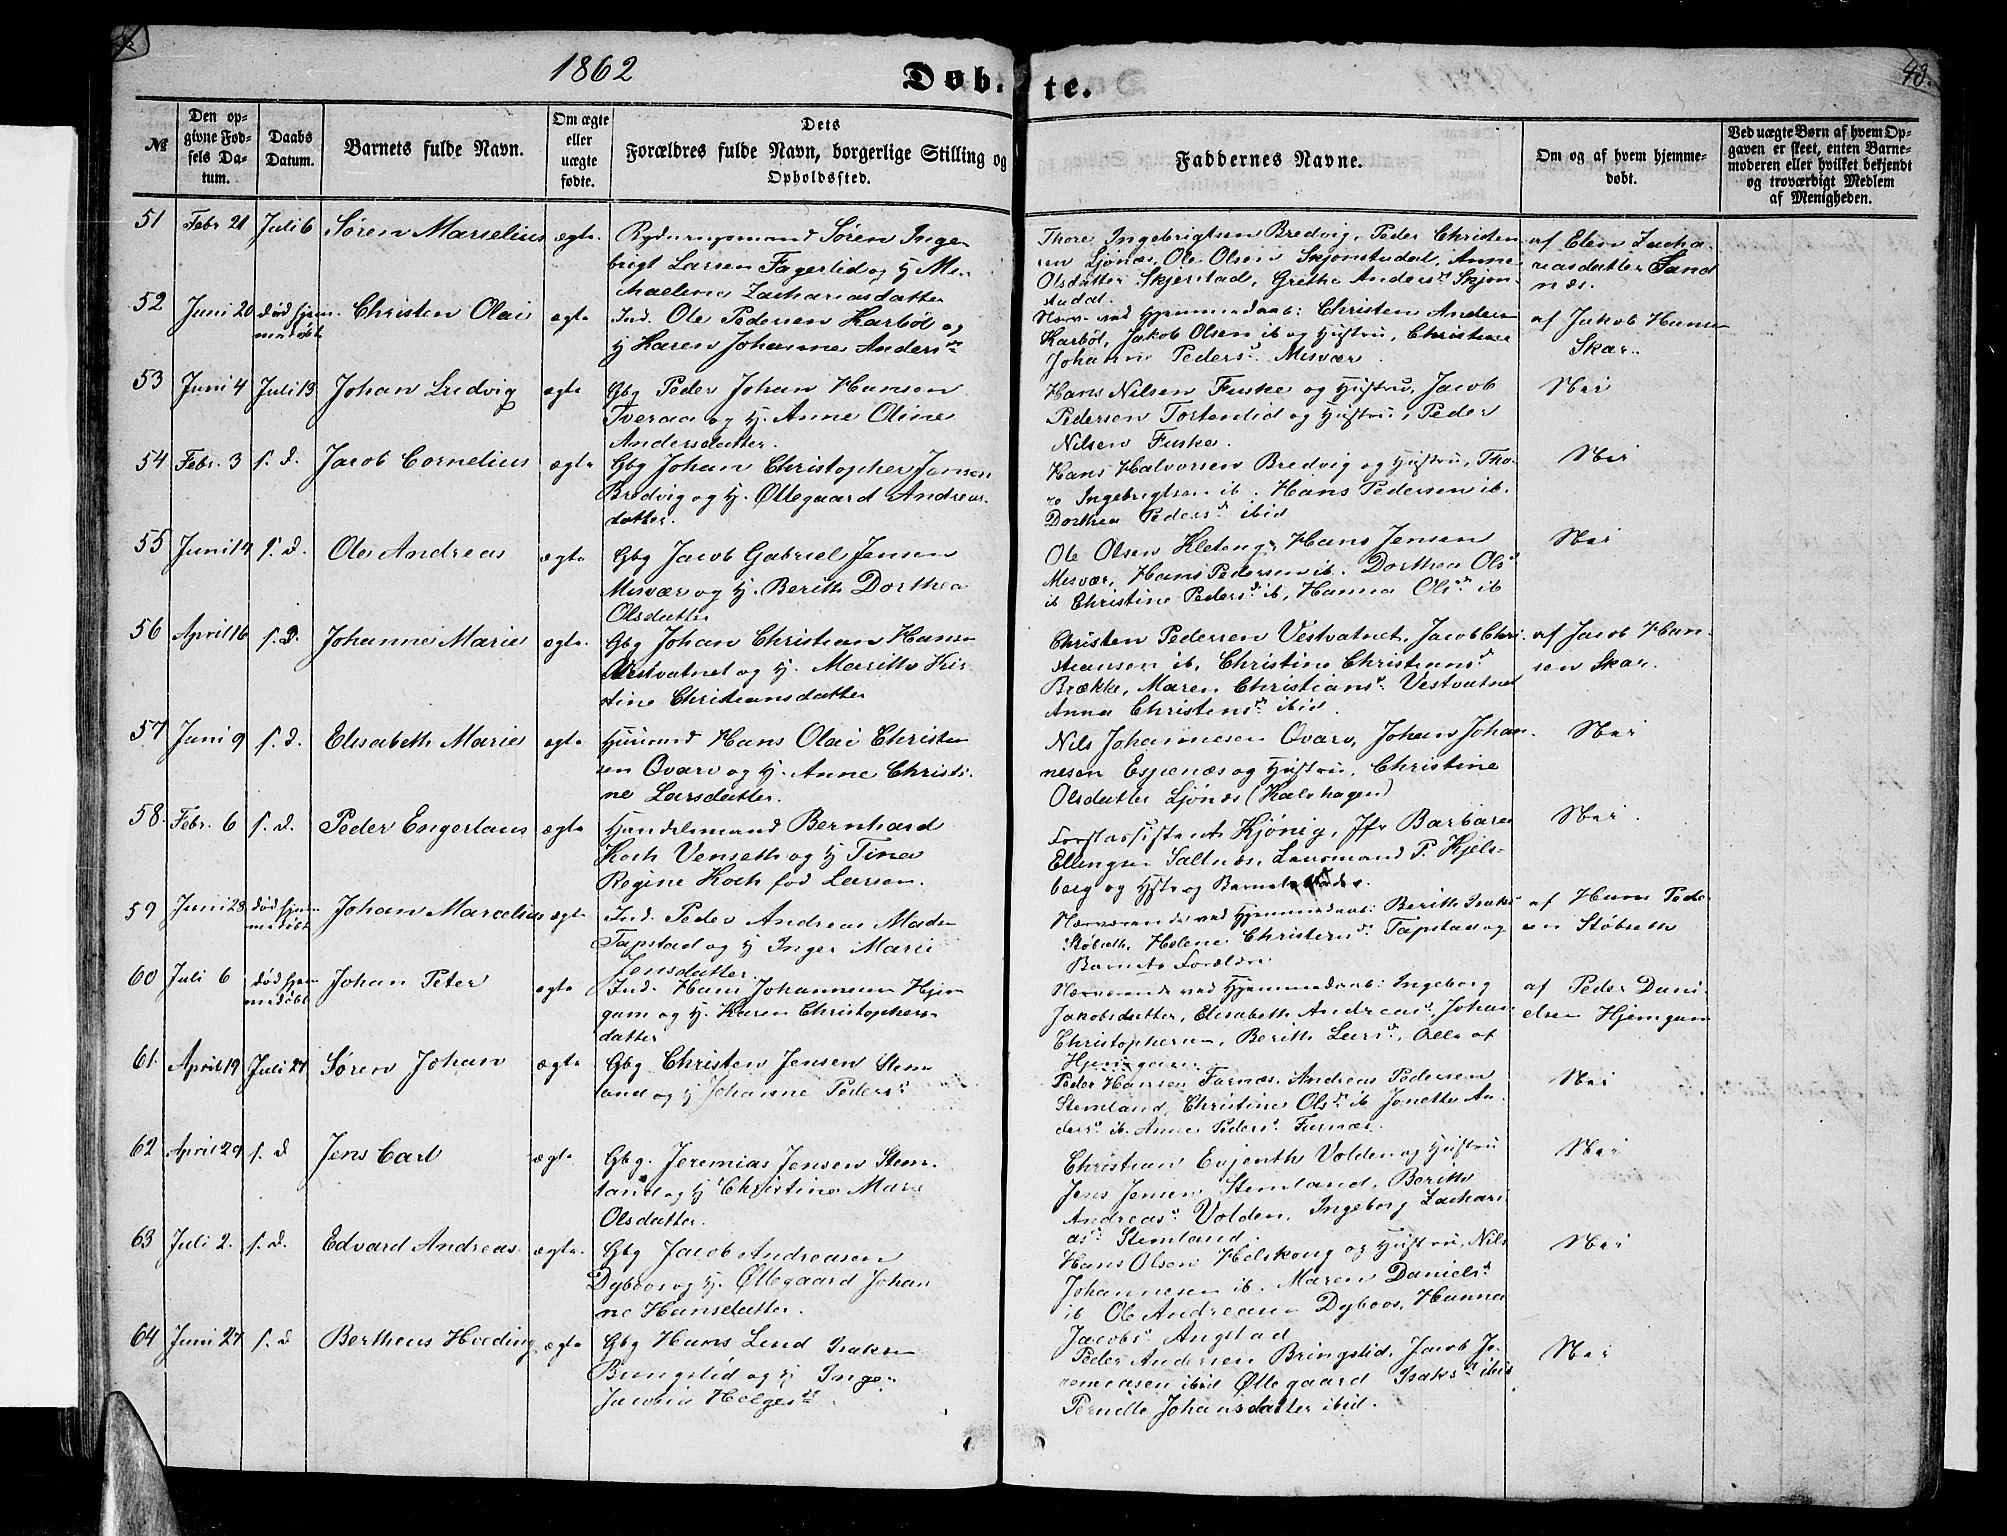 1862
Døbte.
48.
№
Den opgivne Fødsels Datum.
Daabs Datum.
Barnets fulde Navn.
Om ægte eller uægte fødte.
Dets Forældres fulde Navn, borgerlige Stilling og Opholdssted.
Faddernes Navne.
Om og af hvem hjemmedøbt.
Ved uægte Børn af hvem Opgaven er skeet, enten Barnemoderen eller hvilket bekjendt og troværdigt Medlem af Menigheden.
51 Febr 21 Juli 6 Søren Marselius ægte. Rydningsmand Søren Inge-
brigt Larsen Fagerlid og H
Zachariasdatter
Thore Ingebrigtsen Bredvig, Peder Christen-
sen Ljønæs, Ole Olsen Skjønstadal, Anne
Olsdatter Skjerstad, Grethe Anders d Skjøn-
stadal.
af Elen Zacha-
riasdatter Sand
næs.
52 Juni 20 død hjem-
medøbt Christen Olai ægte Ind. Ole Pedersen Karbøl og
H Karen Johanne Anders dtr
ved Hjemmedaab: Christen Anders
Karbøl, Jakob Olsen ib og Hustru, Christine
Johanne Peders d. Misvær.
af Jakob Hansen
Skar.
53 Juni 4 Juli 13 Johan Ludvig ægte Gbg Peder Johan Hansen
Tveraa og H. Anne Oline
Andersdatter.
Hans Nilsen Fuske og Hustru, Jacob
Pedersen Tortenlid og Hustru, Peder
Nilsen Fuske.
Nei
54 Febr. 3 s. d. Jacob Cornelius ægte Gbg Johan Christopher Jansen
Bredvig og H. Øllegaard Andreas-
datter.
Hans Halvorsen Bredvig og Hustru, Tho-
re Ingebrigtsen ib. Hans Pedersen ib.
Dorthea Peders d ibid
Nei
55 Juni 14 s. d. Ole Andreas ægte Gbg Jacob Gabriel Jensen
Misvær og H. Berith Dorthea
Olsdatter
Ole Olsen Kleteng, Hans Jensen
Misvær, Hans Pedersen ib. Dorthea Ols d
ib Christine Peders d ib, Hanna Ols d ib
Nei
56 April 16 s. d. Johanne Marie ægte. Gbg Johan Christian Hansen
Vestvatnet og H. Marith Kir-
stine Christiansdatter
Christen Pedersen Vestvatnet, Jacob Chri-
stiansen ib. Christine Christians d
Brække, Maren Christians d Vestvatnet
Anna Christens d ibid.
af Jacob Han-
sen Skar.
57 Juni 9 s. d. Elisabeth Marie ægte Husmand Hans Olai Christen
sen Qvarv og H. Anne Christi-
ne Larsdatter.
Nils Johannesen Qvarv, Johan Johan-
nesen Espenæs og Hustru, Christine
Olsdatter Ljønæs (Kalvhagen)
Nei
58. Febr. 6 s. d. Peder Engerlaus ægte Handelsmand Bernhard
Koch Venseth og H Tina
Regine Koch fød Larsen.
Forstassistent Kjønig, Jfr Barbara
Ellingsen Saltnæs, Lensmand P. Kjels-
berg og Hstr og Barnets Fader.
Nei.
59 Juni 28 død hjem-
medøbt Johan Marcelius ægte Ind. Peder Andreas Mads
Tapstad og H Inger Marie
Jensdatter.
Nærværende ved Hjemmedaab: Berith Isaks
Støbseth, Helene Christens d Tapstad og
Barnets Forældre
af Hans Peder
sen Støbseth
60 Juli 6 død hjem-
medøbt Johan Peter ægte Ind. Hans Johannesen Hjem-
gam og H. Karen Christophers-
datter
Nærværende ved Hjemmedaab: Ingeborg
Jakobsdatter, Elisabeth Andreas d Johan
Christophersen, Berith Lars d, Alle af
Hjemgam
af Peder Dani-
elsen Hjemgam
61. April 19 Juli 27 Søren Johan ægte Gbg Christen Jensen Stem-
land og H Johanne Peders d
Peder Hansen Farnæs, Andreas Pedersen
Stemland, Christine Ols d ib Jonette An-
ders d ib. Anne Peders d. Furnæs.
Nei
62 April 29 s. d Jens Carl ægte Gbg. Jeremias Jensen Stem-
land og H Christine Marie
Olsdatter.
Christian Evjenth Volden og Hustru
Jens Jensen Stemland, Berith
Andreas d Volden, Ingeborg Zachari-
as d Stemland.
Nei
63 Juli 2. s. d. Edvard Andreas ægte. Gbg Jacob Andreasen
Dybvos og H. Øllegaard Johan
ne Hansdatter.
Hans Olsen Helskong og Hustru, Nils
Johannesen ib. Maren Daniels d
ib Ole Andreasen Dybvos, Hanna
Jacobs d Angstad
Nei
64 Juni 27 s. d Bertheus Hveding ægte Gbg Hans Lund Isaksen
Bringslid og H Inger
Jacobia Helges dtr
Peder Andersen Bringslid, Jacob Je-
remiasen ibid Øllegaard Isaks d ibid
Pernelle Johansdatter ibid.
Nei